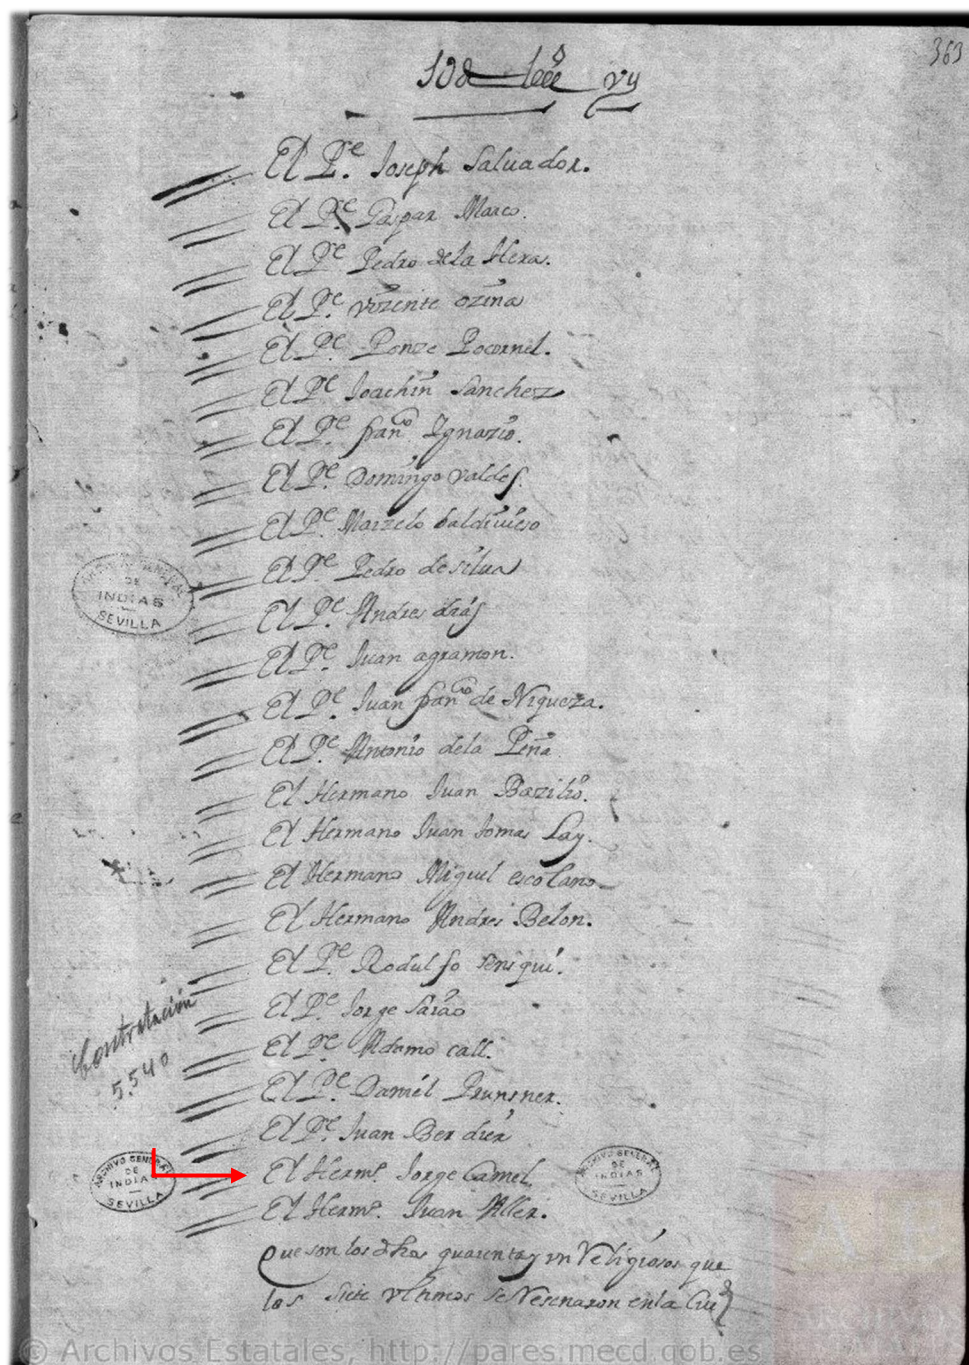 363
El P.e Joseph Saluador.
El P.e Gaspar Marco.
El P.e Pedro de la Heras.
El P.e Vizente ozina
El P.e Ponze
El P.e Joachin Sanchez
El P.e fran.co Ignazio.
El P.e Domingo Valdes.
El P.e Marzelo baldiuieso
El P.e Pedro de silua
El P.e Andres
El P.e Juan agramon.
El P.e Juan fran.co de Nigueza.
El P.e Antonio dela Peña
El Hermano Juan Bazilio.
El Hermano Juan Tomas Lay.
El Hermano Miguel escolano
El Hermano Andres Belon.
El P.e Rodulfo
El P.e Jorge
El P.e Adamo call.
El P.e Daniel Prunsner.
El P.e Juan Ber dier
El Herm.o Jorge Camel.
El Herm.o Juan Aller.
Que son los dhos quarenta y un Religiosos que
los siete vltimos se Resenaron en la
ARCHIVO GENERAL DE INDIAS SEVILLA
Contratación
5.540
ARCHIVO GENERAL DE INDIAS SEVILLA
ARCHIVO GENERAL DE INDIAS SEVILLA
© Archivos Estatales, http://pares.mecd.gob.es